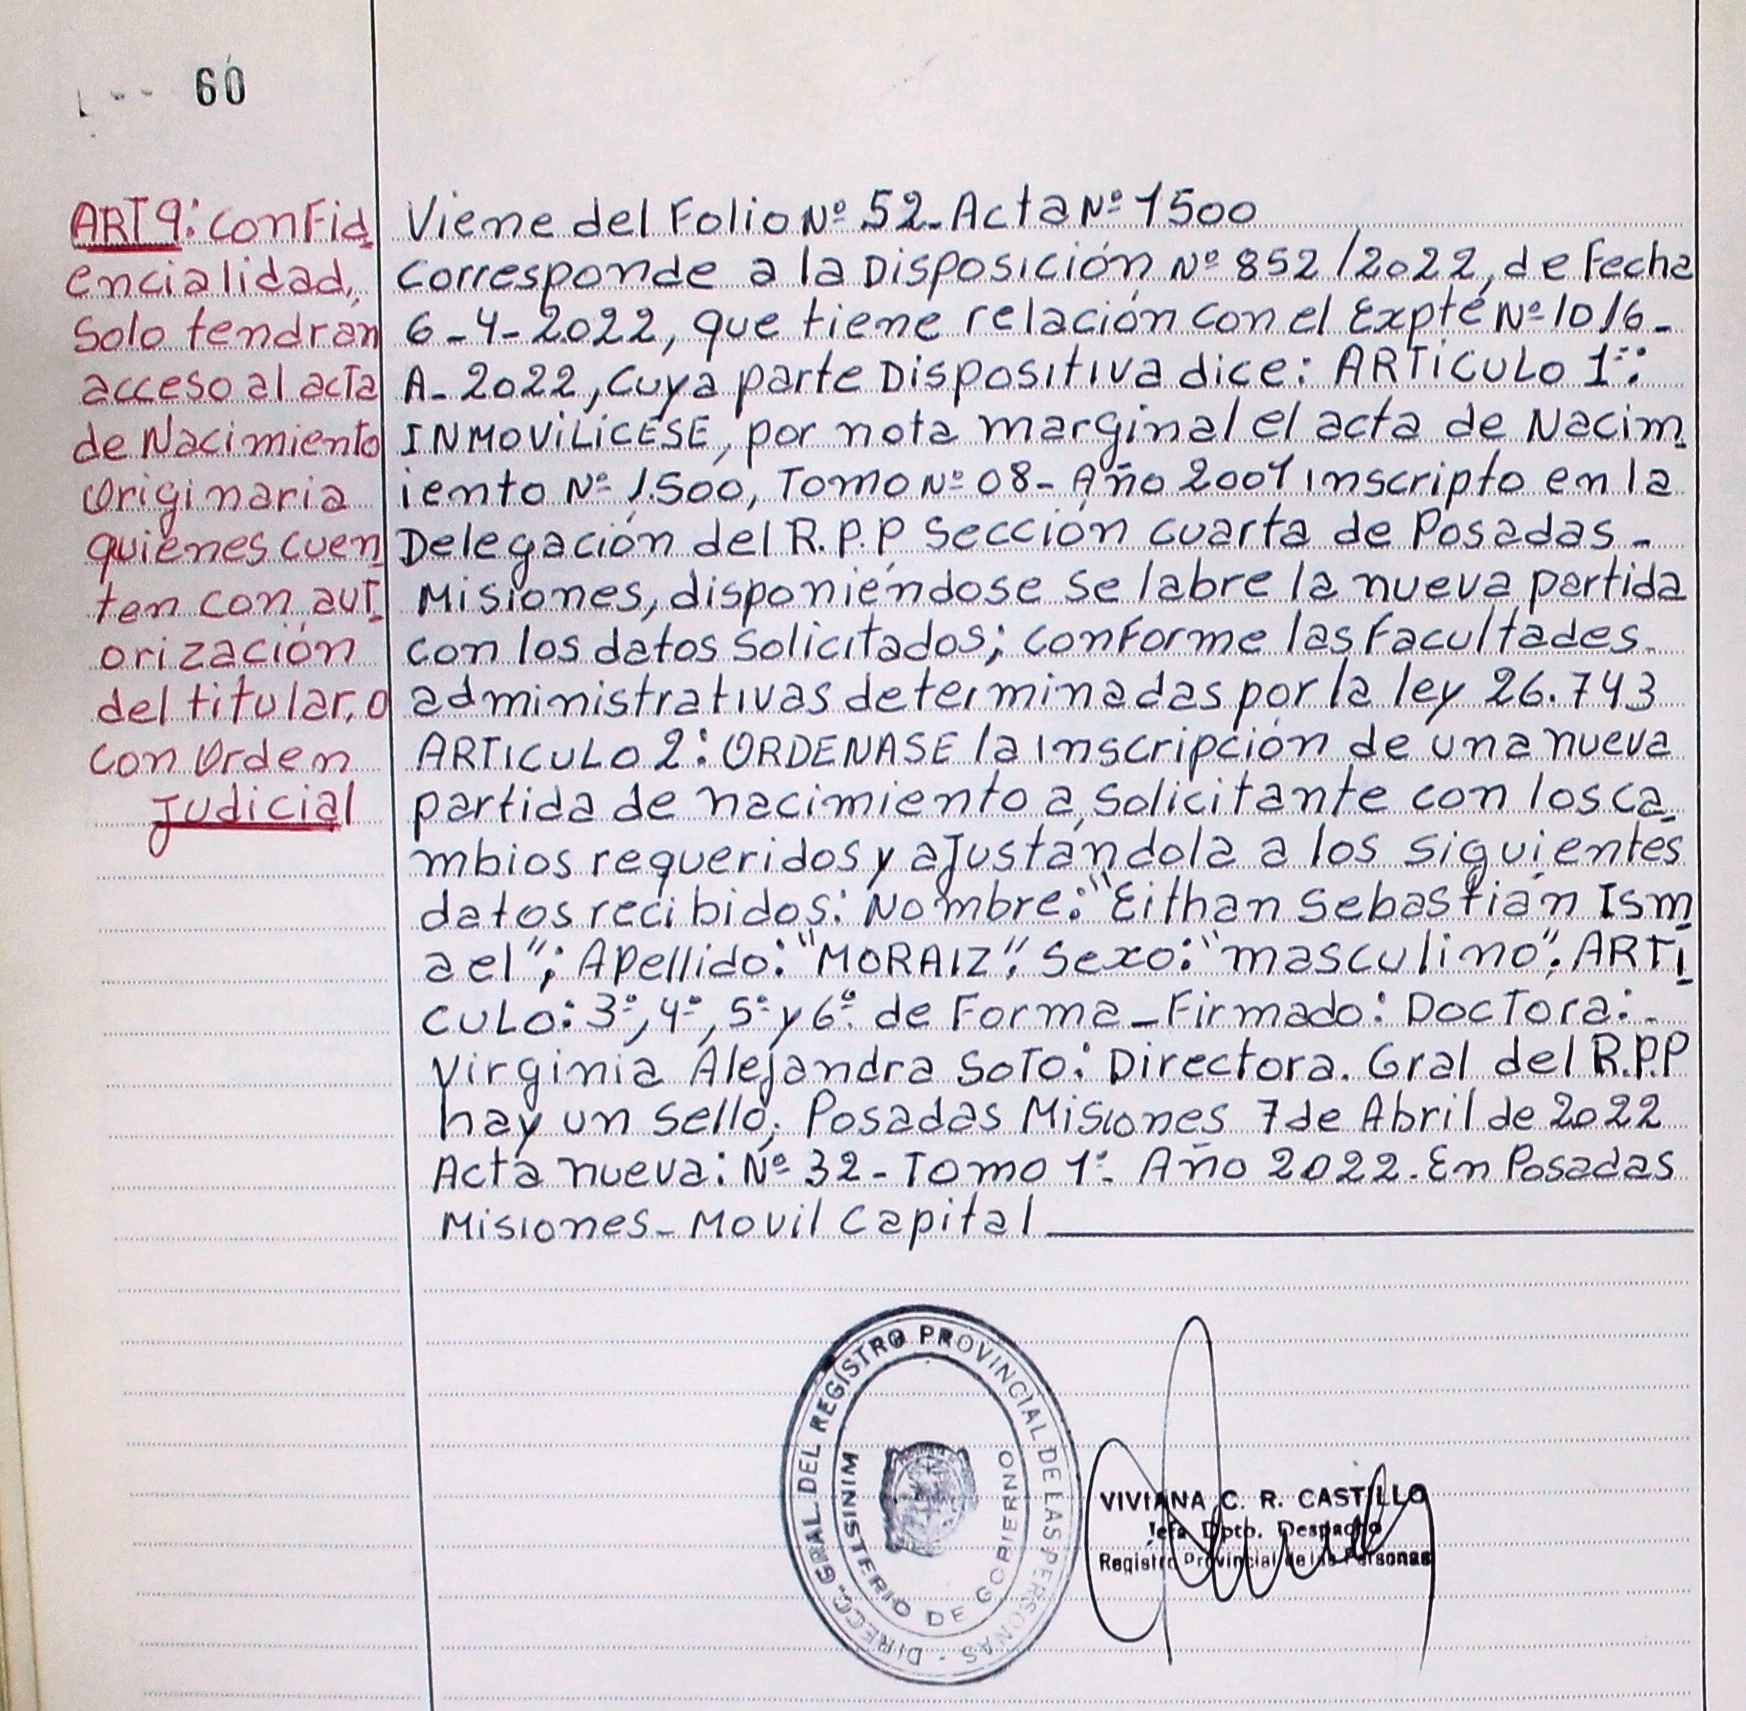 60
ART 9: confid
encialidad,
Solo tendrán
acceso al acta
de Nacimiento
Originaria
quiénes cuen
ten con aut
orización
del titular, o
con Orden
Judicial
Viene del Folio Nº 52_ Acta Nº 1500
Corresponde a la Disposición Nº 852/2022, de fecha
6-4-2022, que tiene relación con el Expte Nº 1016-
A-2022, cuya parte Dispositiva dice: ARTICULO 1º:
INMOVILICESE, por nota marginal el acta de Nacim
iento Nº 1.500, Tomo Nº 08- Año 2001 inscripto en la
Delegación del R.P.P Sección cuarta de Posadas -
Misiones, disponiéndose se labre la nueva partida
con los datos solicitados; conforme las facultades
administrativas determinadas por la ley 26.743
ARTICULO 2: ORDENASE la inscripción de una nueva
partida de nacimiento a solicitante con los ca
mbios requeridos y ajustándola a los siguientes
datos recibidos: Nombre: "Eithan Sebastián Ism
ael"; Apellido: "MORAIZ", Sexo: "masculino". ARTÍ
CULO: 3º, 4º, 5º y 6º. de Forma_Firmado: Doctora:
Virginia Alejandra Soto: Directora. Gral del R.P.P
hay un sello, Posadas Misiones 7 de Abril de 2022
Acta nueva: Nº 32 - Tomo 1º. Año 2022. En Posadas
Misiones - Movil Capital
DIRECC. GRAL. DEL REGISTRO PROVINCIAL DE LAS PERSONAS -
MINISTERIO DE GOBIERNO
VIVIANA C. R. CASTILLO
Jefa Dpto. Despacho
Registro Provincial de las Personas